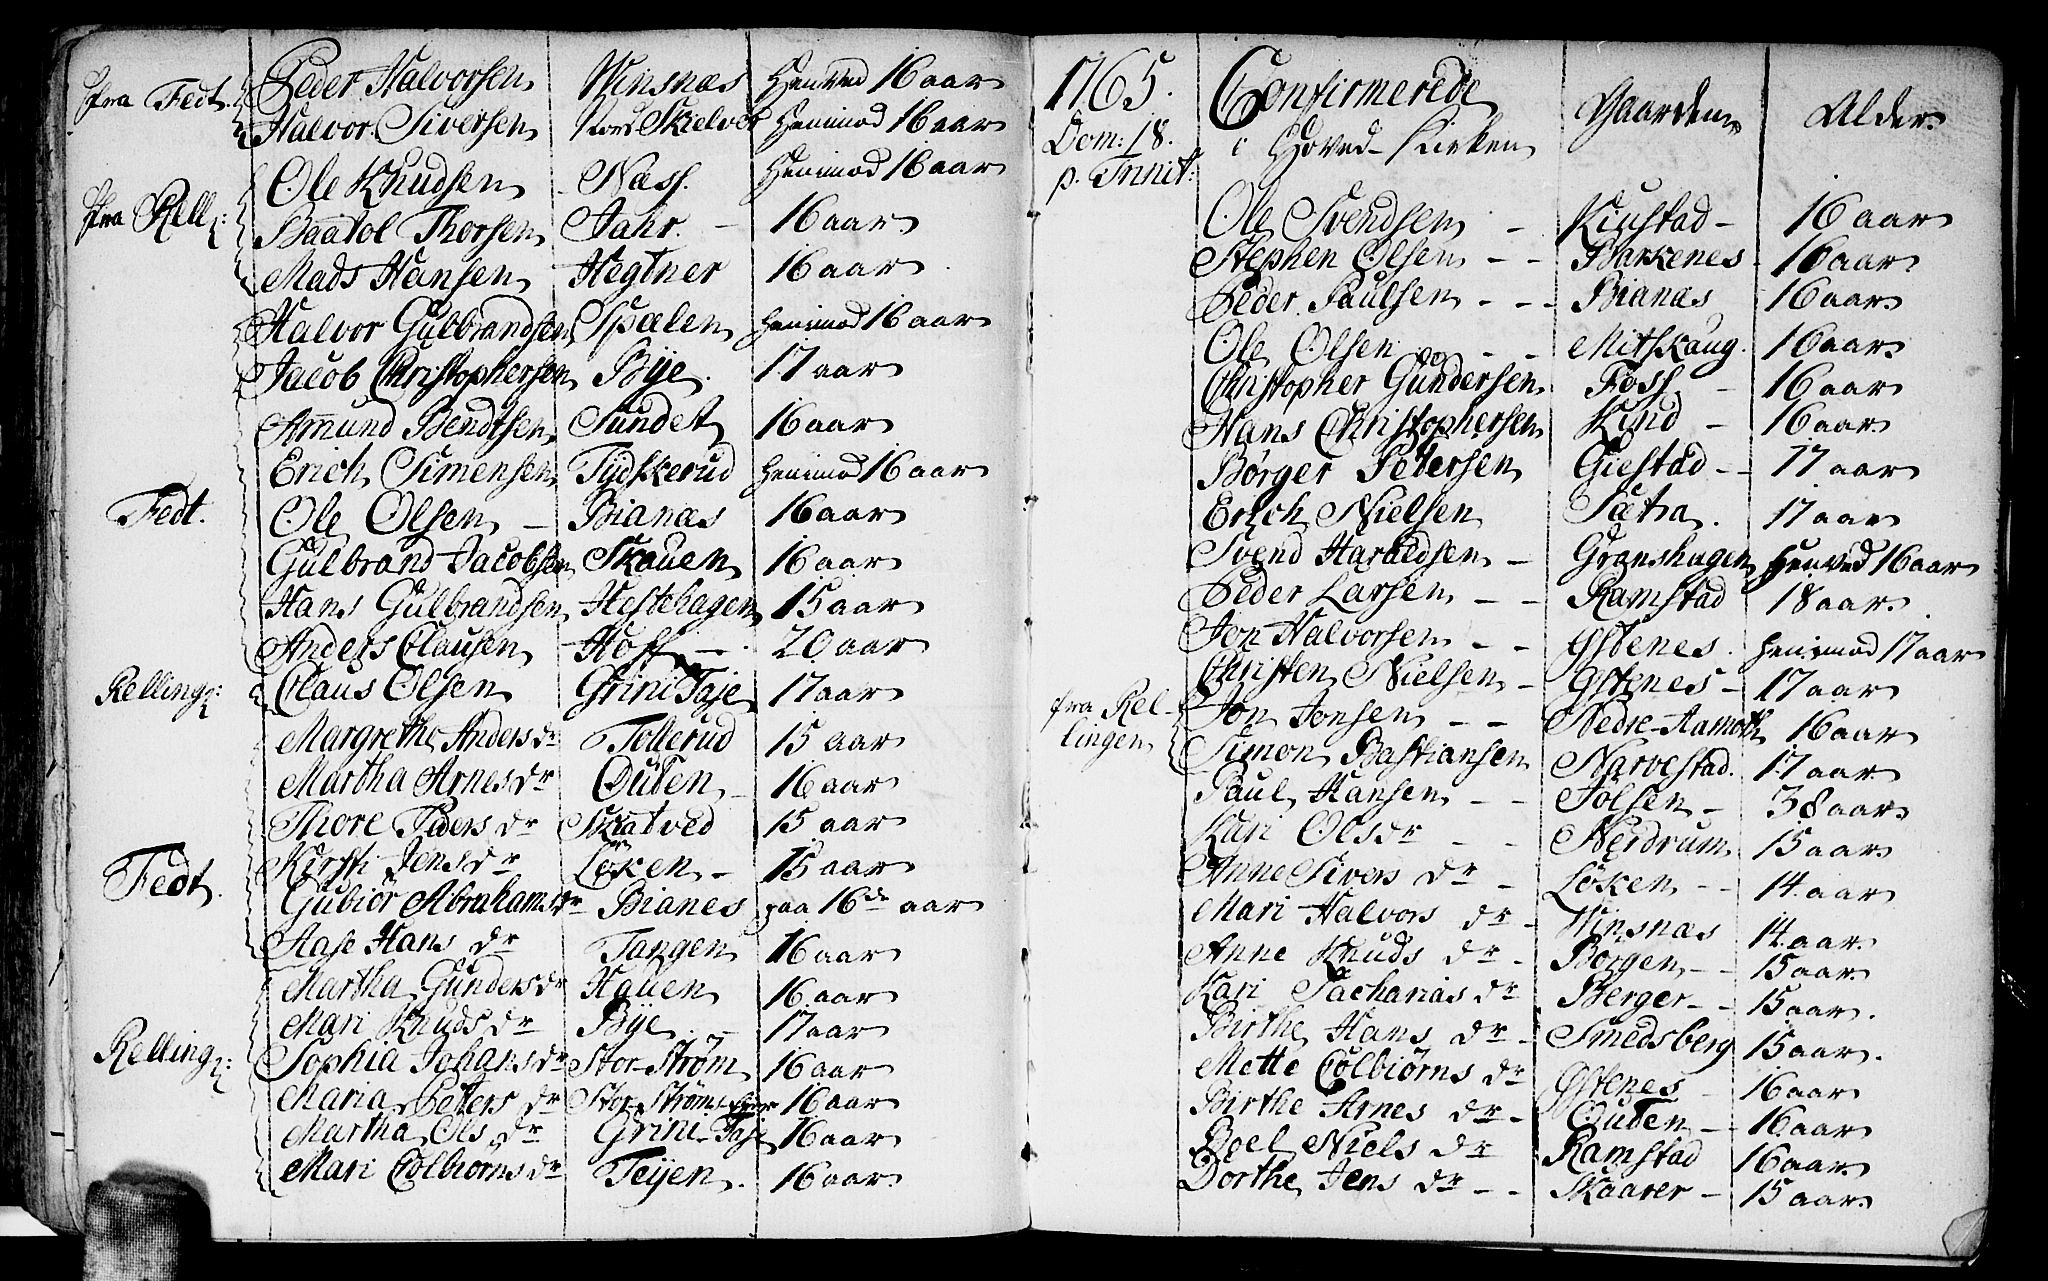 fra Fedt. Peder Halvorsen Winsnæs Henved 16 aar
Halvor Siversen Nord Skielver Henimod 16 aar
Ole Knudsen Næss. Henimod 16 aar
fra Rell: Baatol Thorsen Jahr. - 16 aar
Mads Hansen Hegtner 16 aar
Halvor Gulbrandsen Spælen henimod 16 aar
Jacob Christophersen Bije. 17 aar
Amund Bendtsen Sundet 16 aar
Erich Simensen Tydskerud henimod 16 aar
Fedt. Ole Olsen - Bianæs 16 aar
Gulbrand Jacobsen Skauen 16 aar
Hans Gulbrandsen Hestehagen 15 aar
Anders Clausen Hoff - 20 aar
Relling: Claus Olsen Grini Taje 17 aar
Margrethe Anders dr Tollerud 15 aar
Martha Arnes dr Ouden 16 aar
Thore Peders dr Skatved 15 aar
Kirsti Jens dr Løken - 15 aar
Fedt. Gubiør Abrahams dr Bianes paa 16de aar
Aase Hans dr Tangen 16 aar
Martha Gunders dr Hauen 16 aar
Mari Knuds dr Bye. - 17 aar
Relling: Sophia Johans dr Stor-Strøm 16 aar
Maria Peters dr Stor-Strøms 16 aar
Martha Ols dr Grini-Taje 16 aar
Mari Colbiørns dr Teijen. 16 aar
1765. Confirmerede Gaarden Alder.
Dom: 18. i Hoved-Kirken
p. Trinit:
Ole Svendsen - Kiustad - 16 aar
Stephen Olsen - - Barkenes - 16 aar
Peder Paulsen - - - Bianæs 16 aar
Ole Olsen - - Mitskaug. 16 aar
Christopher Gundersen Foss - 16 aar
Hans Christophersen Kind - 16 aar
Børger Petersen Giestad - - 17 aar
Erich Nielsen Sætra. 17 aar
Svend Haraldsen - Granshagen Henved 16 aar
Peder Larsen - - Ramstad 18 aar
Jon Halvorsen - - Ystenes. henimod 17 aar
Christen Nielsen - Ystenes - 17 aar
fra Rel- Jon Jonsen - - Nedre-Aamoth 16 aar
lingen Simon Bastiansen Narvestad. 17 aar
Paul Hansen - - Folsen - 38 aar
Kari Ols dr - - Nerdrum 15 aar
Anne Sivers dr - Løken - - 14 aar
Mari Halvors dr - Winsnæs 14 aar
Anne Knuds dr - Borgen - - 15 aar
Kari Zacharias dr Berger - - 15 aar.
Birthe Hans dr - Smedsberg 15 aar.
Mette Colbiørns dr Ystenes - 16 aar
Birthe Arnes dr - Ouden - - 16 aar
Boel Niels dr Ramstad 16 aar
Dorthe Jens dr - - Skaarer - 15 aar